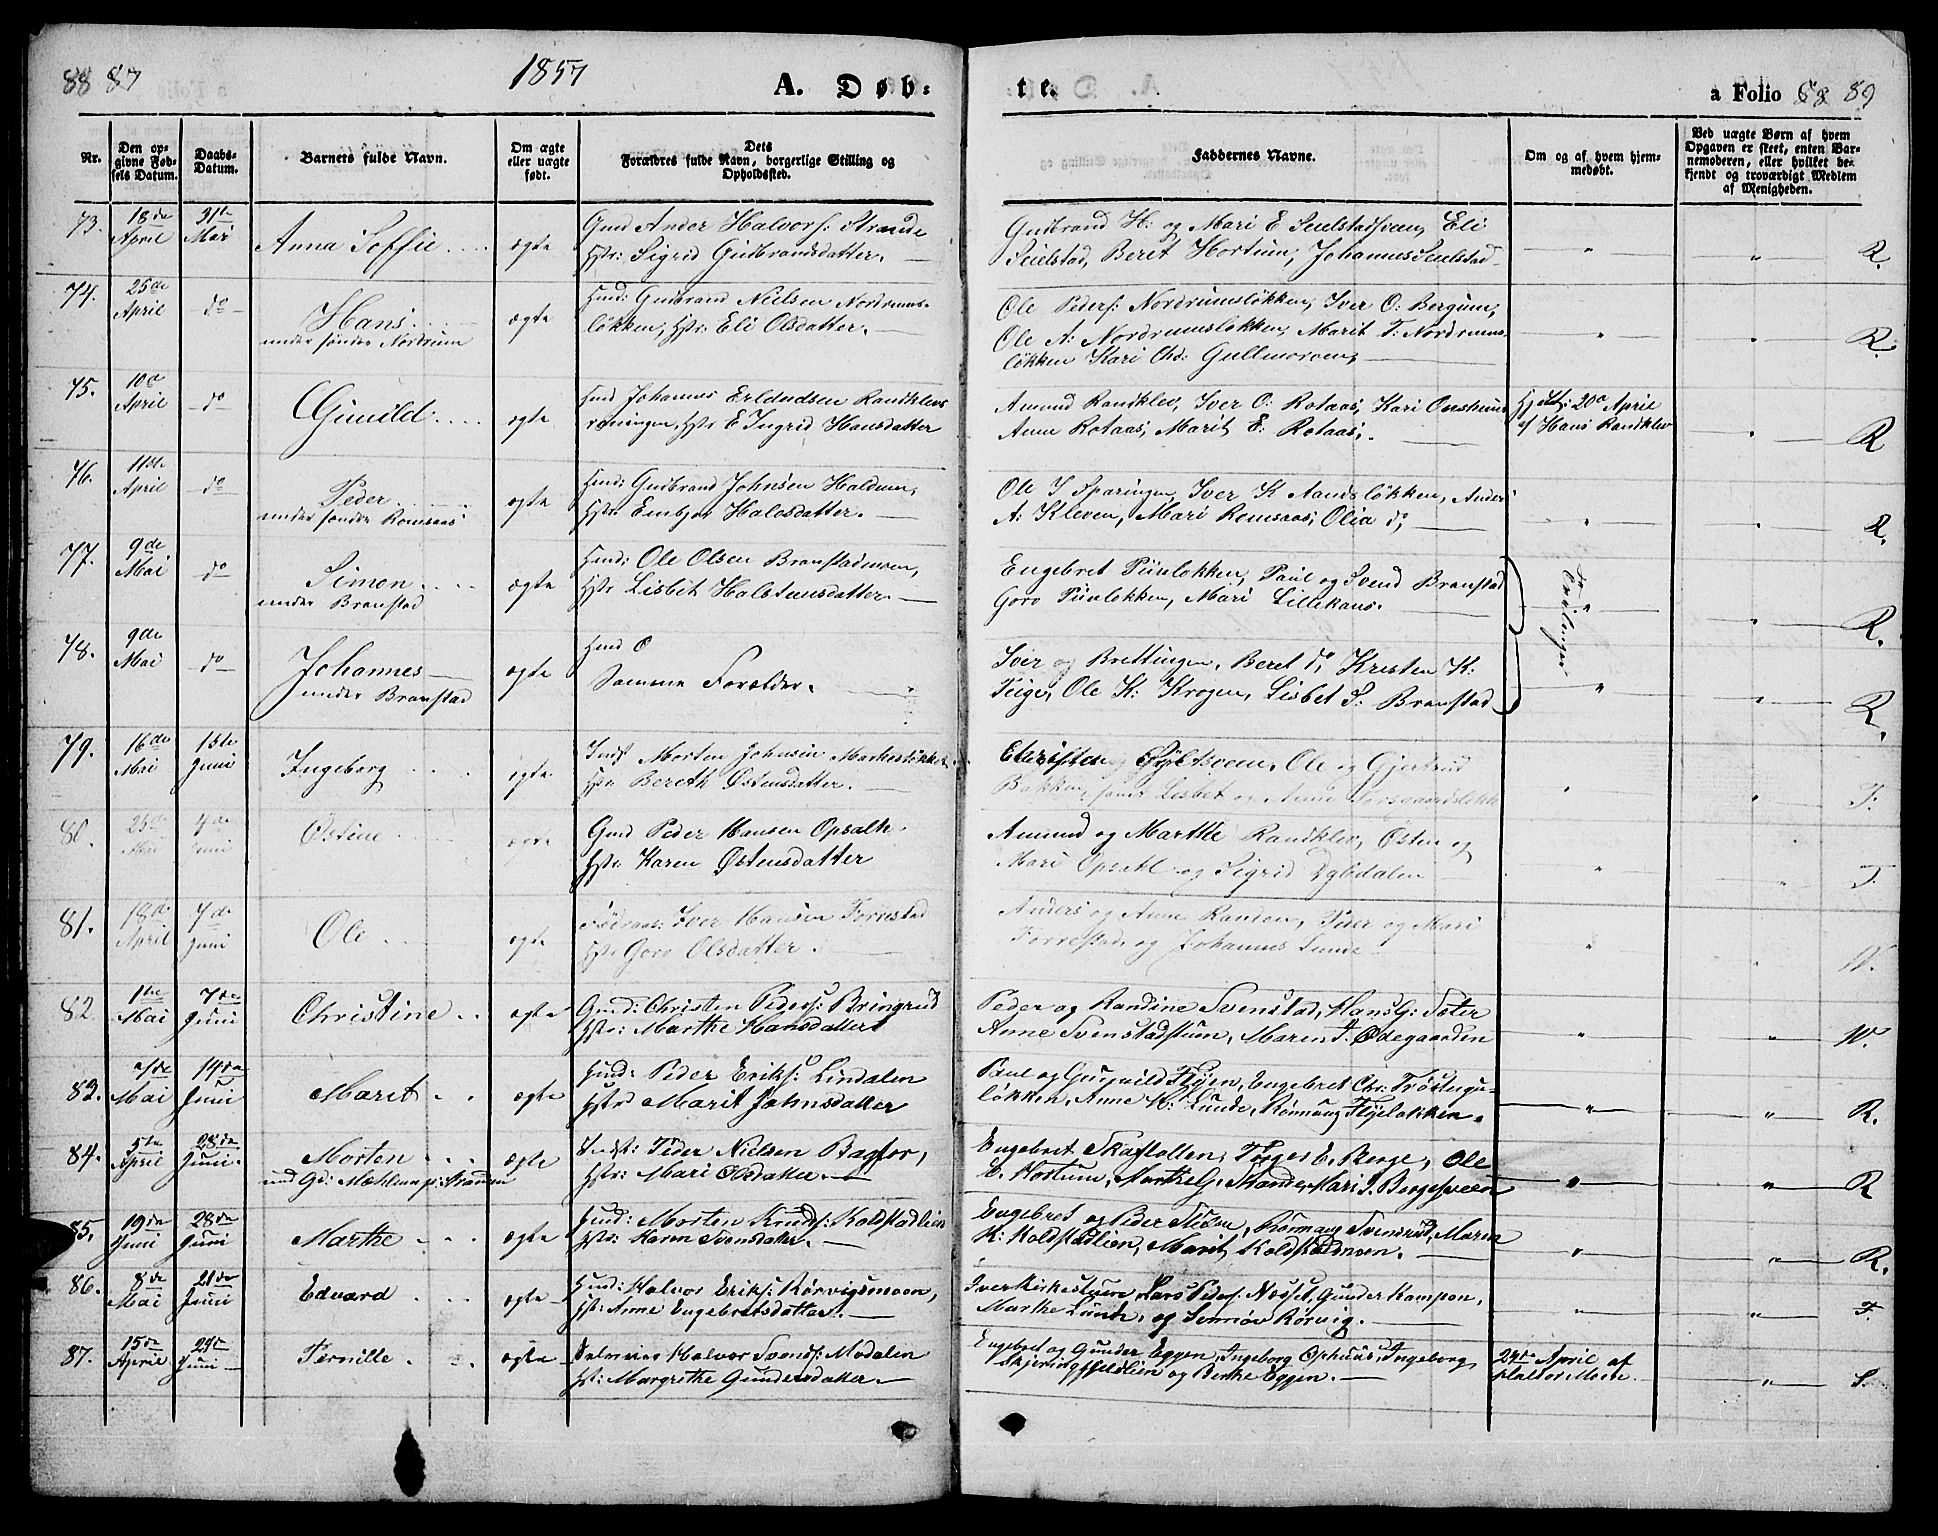 88 87
1857
A. Døb-
te.
a Folio 88 89
Nr.
Den opgivne Fødsels Datum.
Daabs-Datum.
Barnets fulde Navn.
Om ægte eller uægte født.
Dets Forældres fulde Navn, borgerlige Stilling og Opholdssted.
Faddernes Navne.
Om og af hvem hjemmedøbt.
Ved uægte Børn af hvem Opgaven er skeet, enten Barnemoderen, eller hvilket bekjendt og troværdigt Medlem af Menigheden.
73. 18de April 31te Mai Anna Soffie ægte Gmd Ander Halvors: Strande
Hstr: Sigrid Gudbrandsdatter.
Gudbrand H: og Mari E Seielstadsveen, Eli
Seielstad, Beret Hortum; Johannes Seielstad
" " R.
74. 25de April do Hans ægte Hmd: Gudbrand Nielsen Nordrums-
under søndre Nordrum
løkken, Hstr: Eli Olsdatter.
Ole Peders: Nordrumsløkken, Iver O: Bergum,
Ole A: Nordrumsløkken, Marit T: Nordrums-
løkken Kari Chd: Gullmoroen,
" " R.
75. 10de April do Gunild ægte Hmd Johannes Erlandsen Randklevs
Hstr E Ingrid Hansdatter
Amund Randklev, Iver O: Rotaas, Kari
Anne Rotaas, Marit E: Rotaas,
20de April
af Hans Randklev
" R
76. 11te April do Peder ægte Hmd: Gudbrand Johnsen Haldum,
under søndre Romsaas
Hstr: Embjør Halvsdatter.
Ole I Sparingen, Iver K Aandsløkken, Anders
A: Kleven, Mari Romsaas, Olia do,
" " R.
77. 9de Mai do Simon ægte Hmd: Ole Olsen Branstadmoen,
under Branstad
Hstr Lisbet Halstensdatter.
Engebret Piunløkken, Paul og Svend Branstad
Goro Piunløkken, Mari Lillekaas.
Tvillinger
" " R.
78. 9de Mai do Johannes ægte Hmd O
under Branstad
Samme Forældre.
Iver og Brettingen, Beret do, Kristen K:
Teige, Ole K: Krogen, Lisbet S: Branstad
" " R.
79. 16de Mai 1ste Juni Ingeborg ægte Indst Morten Johnsen
Hstr Bereth Østensdatter.
Ole og Gjertrud
Bakken, samt Lisbet og Anne
" " T.
80. 25de Mai 4de Juni Østine ægte Gmd Peder Hansen Opsalh.
Hstr Karen Østensdatter
Amund og Marthe Randklev, Østen og
Mari Opsahl og Sigrid
" " T.
81. 18de April 7de Juni Ole ægte Føderaas: Iver Hansen Forrestad
Hstr Goro Olsdatter.
Anders og Anne Randen, Peder og Mari
Forrestad og Johannes Lunde
" W.
82 1ste Mai 7de Juni Christine ægte Gmd: Christen Peders: Bringerud
Hstr: Marthe Hansdatter
Peder og Randine Svenstad, Hans G: Sæter
Anne Svenstadstuen, Maren T: Ødegaarden
" " W.
83. Mai 14de Juni Marit ægte Hmd: Peder Eriks: Lindalen
Hstr Marit Johnsdatter
Paul og Gunvild Flyen, Engebret Chr: Trøstegu-
løkken, Anne K: Lunde, Rønnaug Flyeløkken.
" " R.
84. 5te April 28de Juni Morten ægte Indst: Peder Nielsen Bagfor,
Hstr: Mari Olsdatter.
Engebret Skaftollen, Torger E. Berge, Ole
E. Hortum, Marthe G. Strande, Mari I. Bergesveen
" " R
85. 19de Juni 28de Juni Marthe ægte Hmd: Morten Knuds: Koldstadlien
Hstr: Karen Svensdatter.
Engebret og Peder Steen, Rønnaug Svensrud, Maren
K: Koldstadlien, Marit Koldstadmoen.
" " R.
86. 8de Mai 21de Juni Edvard ægte Hmd: Halvor Eriks: Rørvigsmoen,
Hst: Anne Engebretsdatter.
Iver Kirkestuen Lars Peders: Næsset, Gunder Kampen,
Marthe Lunde, og Rørvig.
" " F.
87. 15de April Juni Pernille ægte Halvor Svends: Modalen
Hst: Margrethe Gundersdatter.
Engebret og Gunder Eggen, Ingeborg Ophuus, Ingeborg
og Berthe Eggen.
April af
Moen.
" S.